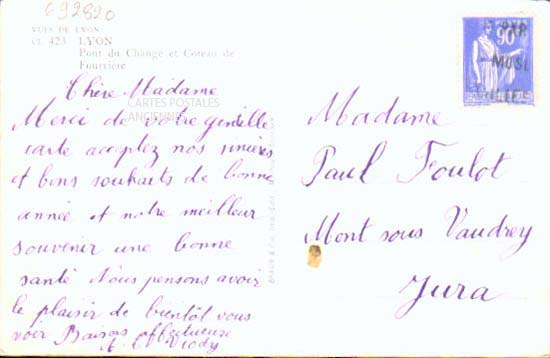 692820
VUES DE LYON
Cl. 423 LYON
Pont du Change et Coteau de
Fourvière
Chère Madame
CARTES POSTALES
ANCIENNES
Merci de votre gentille
carte acceptez nos sincères
et bons souhaits de bonne
année et notre meilleur
souvenir une bonne
santé Nous pensons avoir
le plaisir de bientôt vous
voir Baisers affectueuse
POSTES
90
Madame
Paul Foulot
Mont sous Vaudrey
Jura